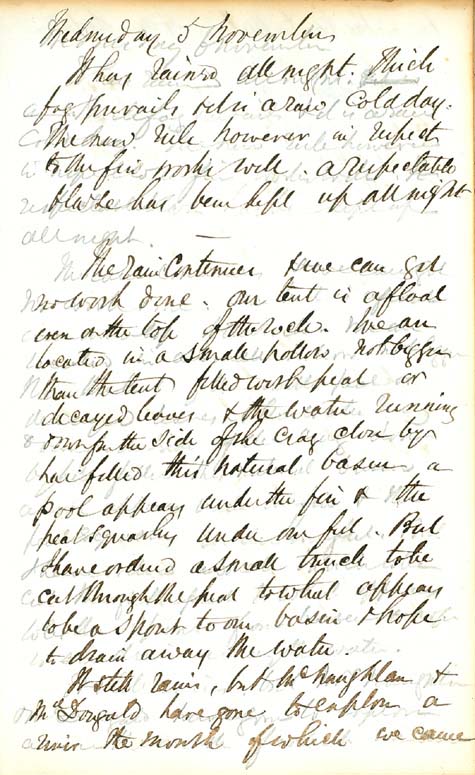 Wednesday 5 November
It has rained all night. Thick
fog prevails & it is a raw cold day.
The new rule however in respect
to the fire works well. a respectable
blaze has been kept up all night
The rain continues & we can get
no work done. Our tent is afloat
even on the top of the rock. We are
located in a small hollow not bigger
than the tent filled with peat or
decayed leaves & the water running
down from the side of the crag close by
has filled this natural basin. a
pool appears under the fire & the
peat squashes under our feet. But
I have ordered a small trench to be
cut through the peat to what appears
to be a spout to our basin & hope
to drain away the water.
It still rains, but McNaughlan &
McDougald have gone to explore a
river the mouth of which we came